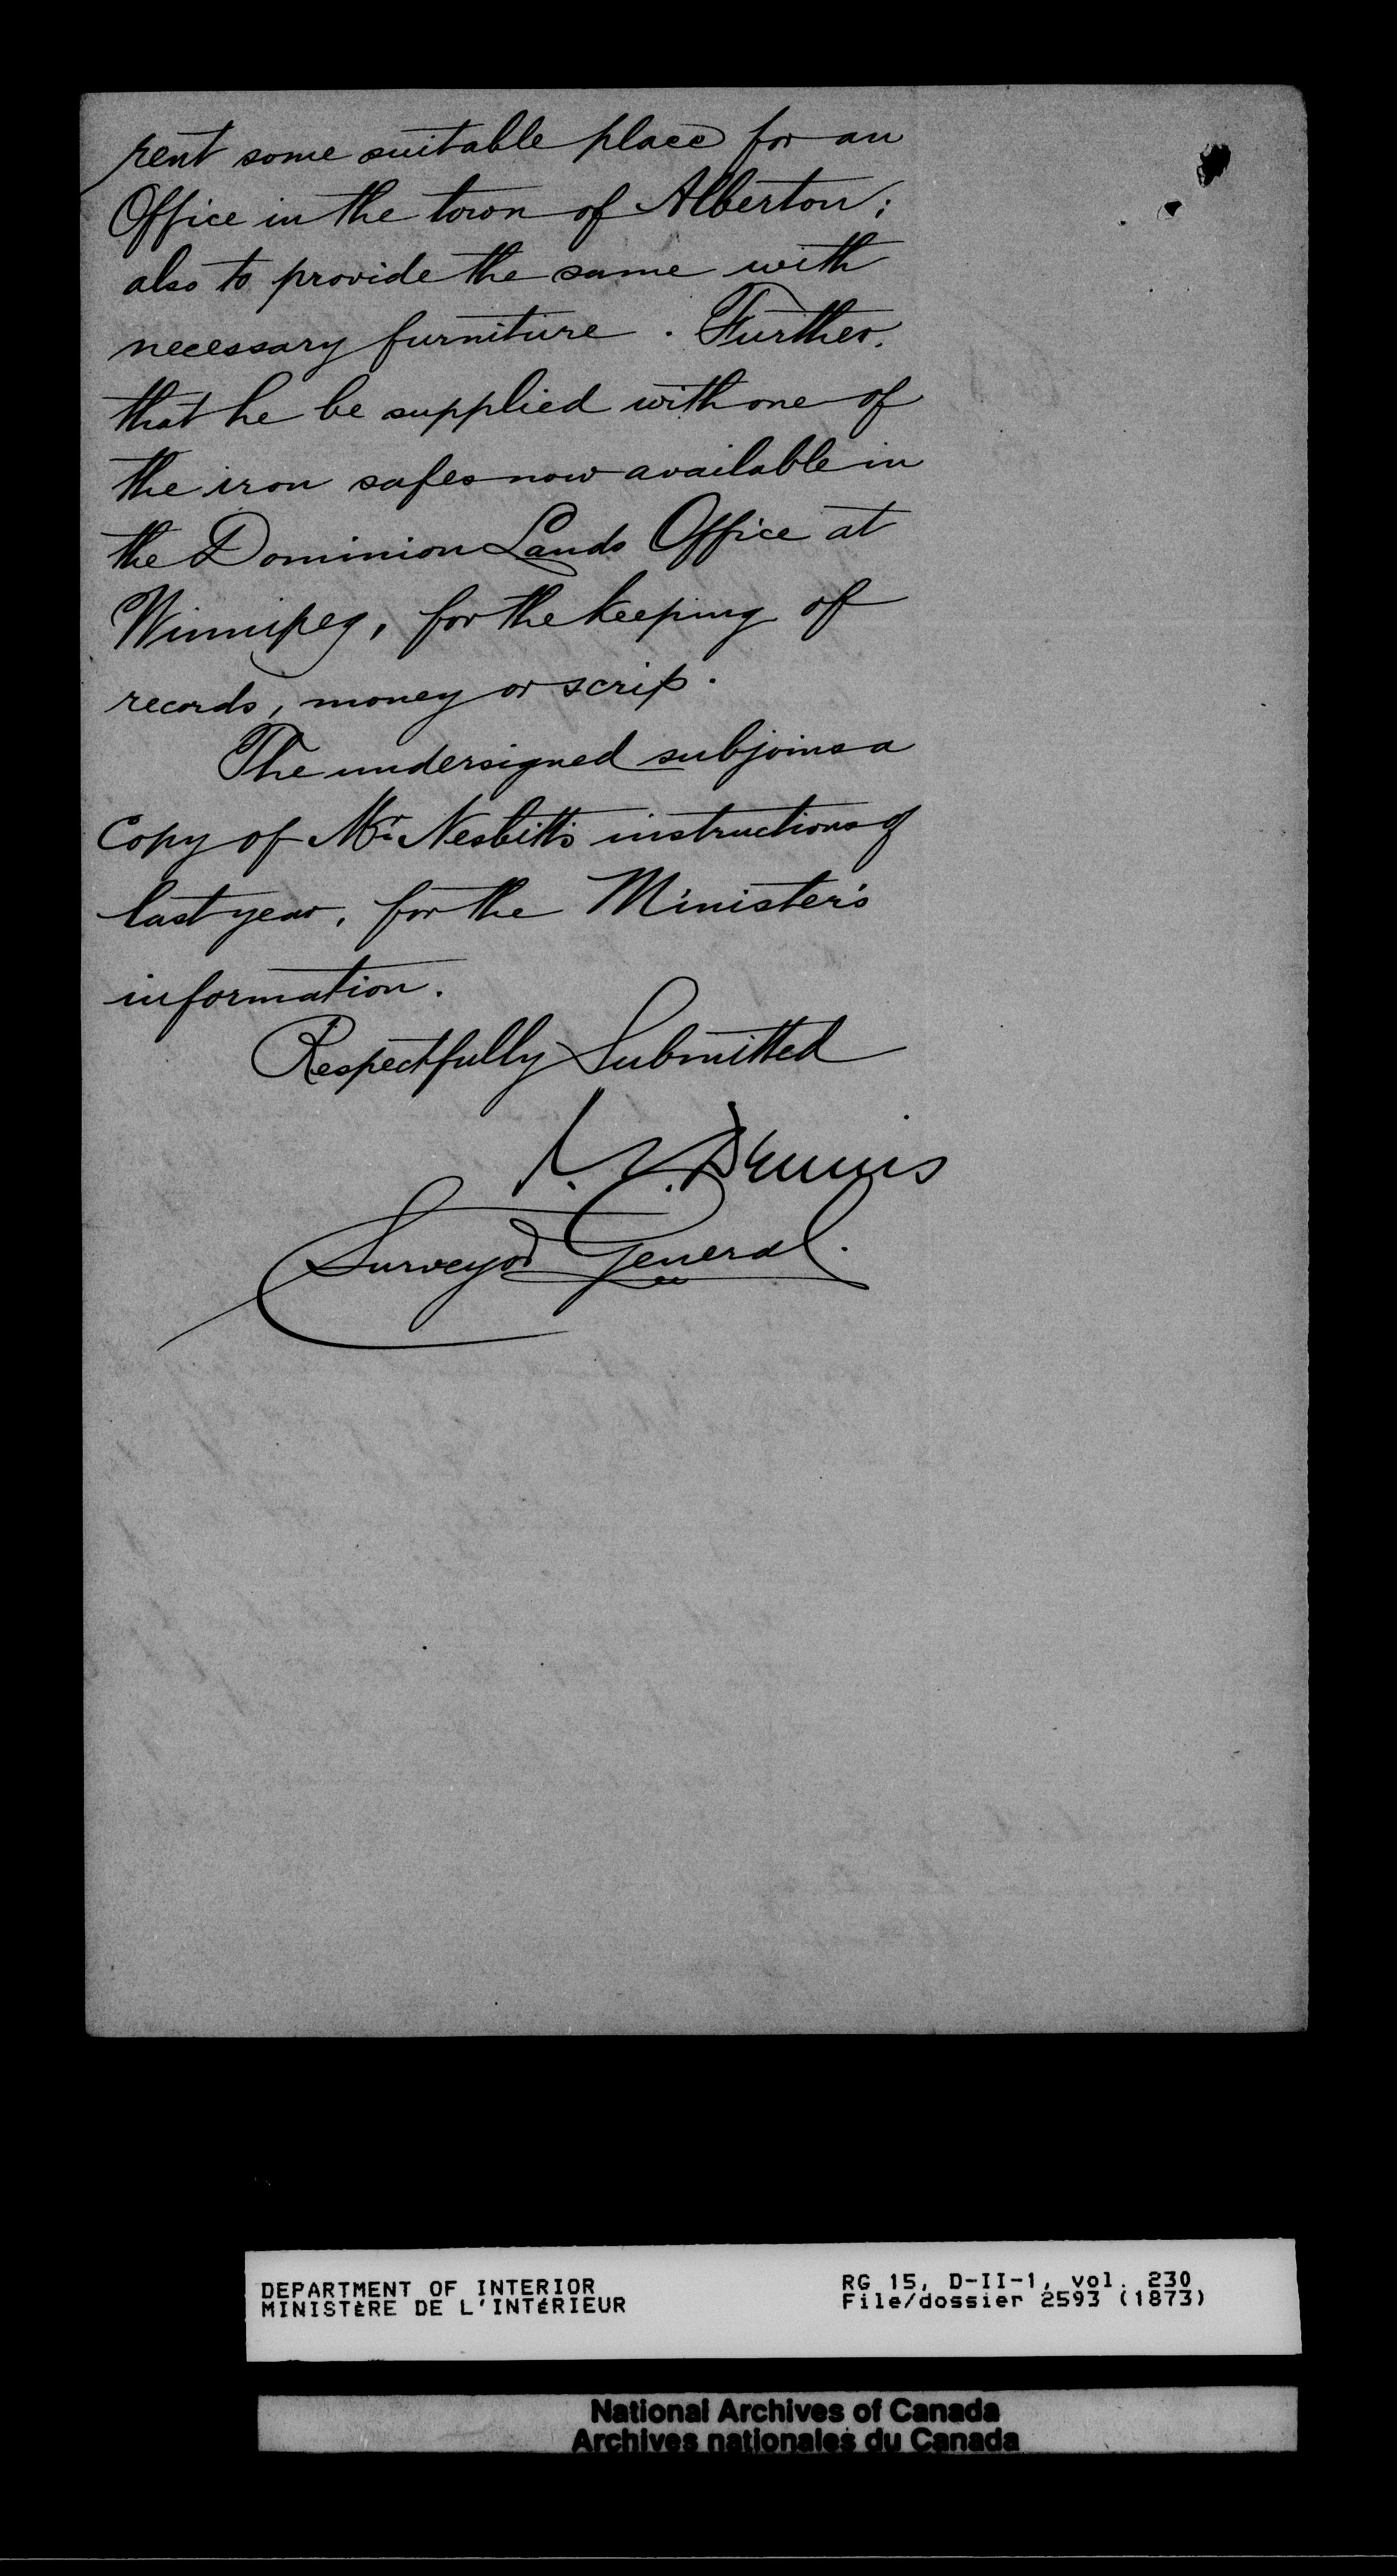 rent some suitable place for an
Office in the town of Alberton;
also to provide the same with
necessary furniture. Further,
that he be supplied with one of
the iron safes now available in
the Dominion Lands Office at
Winnipeg, for the keeping of
records, money or scrip.
The undersigned subjoins a
Copy of Mr. Nesbitt's instructions of
last year, for the Minister's
information.
Respectfully Submitted
J. S. Dennis
Surveyor General.
DEPARTMENT OF INTERIOR
MINISTÈRE DE L'INTÉRIEUR
RG 15, D-II-1, vol. 230
File/dossier 2593 (1873)
National Archives of Canada
Archives nationales du Canada